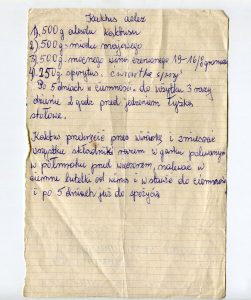 Kaktus aolez
1) 500 g aloesu kaktusu
2) 500 g miodu majowego
3) 500 g mocnego wina czerwonego 19-16/8
4. 250 g spirytus. ćwiartka
Po 5 dniach w ciemności do użytku 3 razy
dziennie 1 godz przed jedzeniem łyżka
stołowa.
Kaktus przekręcić przez wirówkę i zmieszać
wszystkie składniki razem w garku
w półmroku pred wieczorem, nalewać w
ciemne butelki od wina i wstawić do ciemności
i po 5 dniach już do spożycia